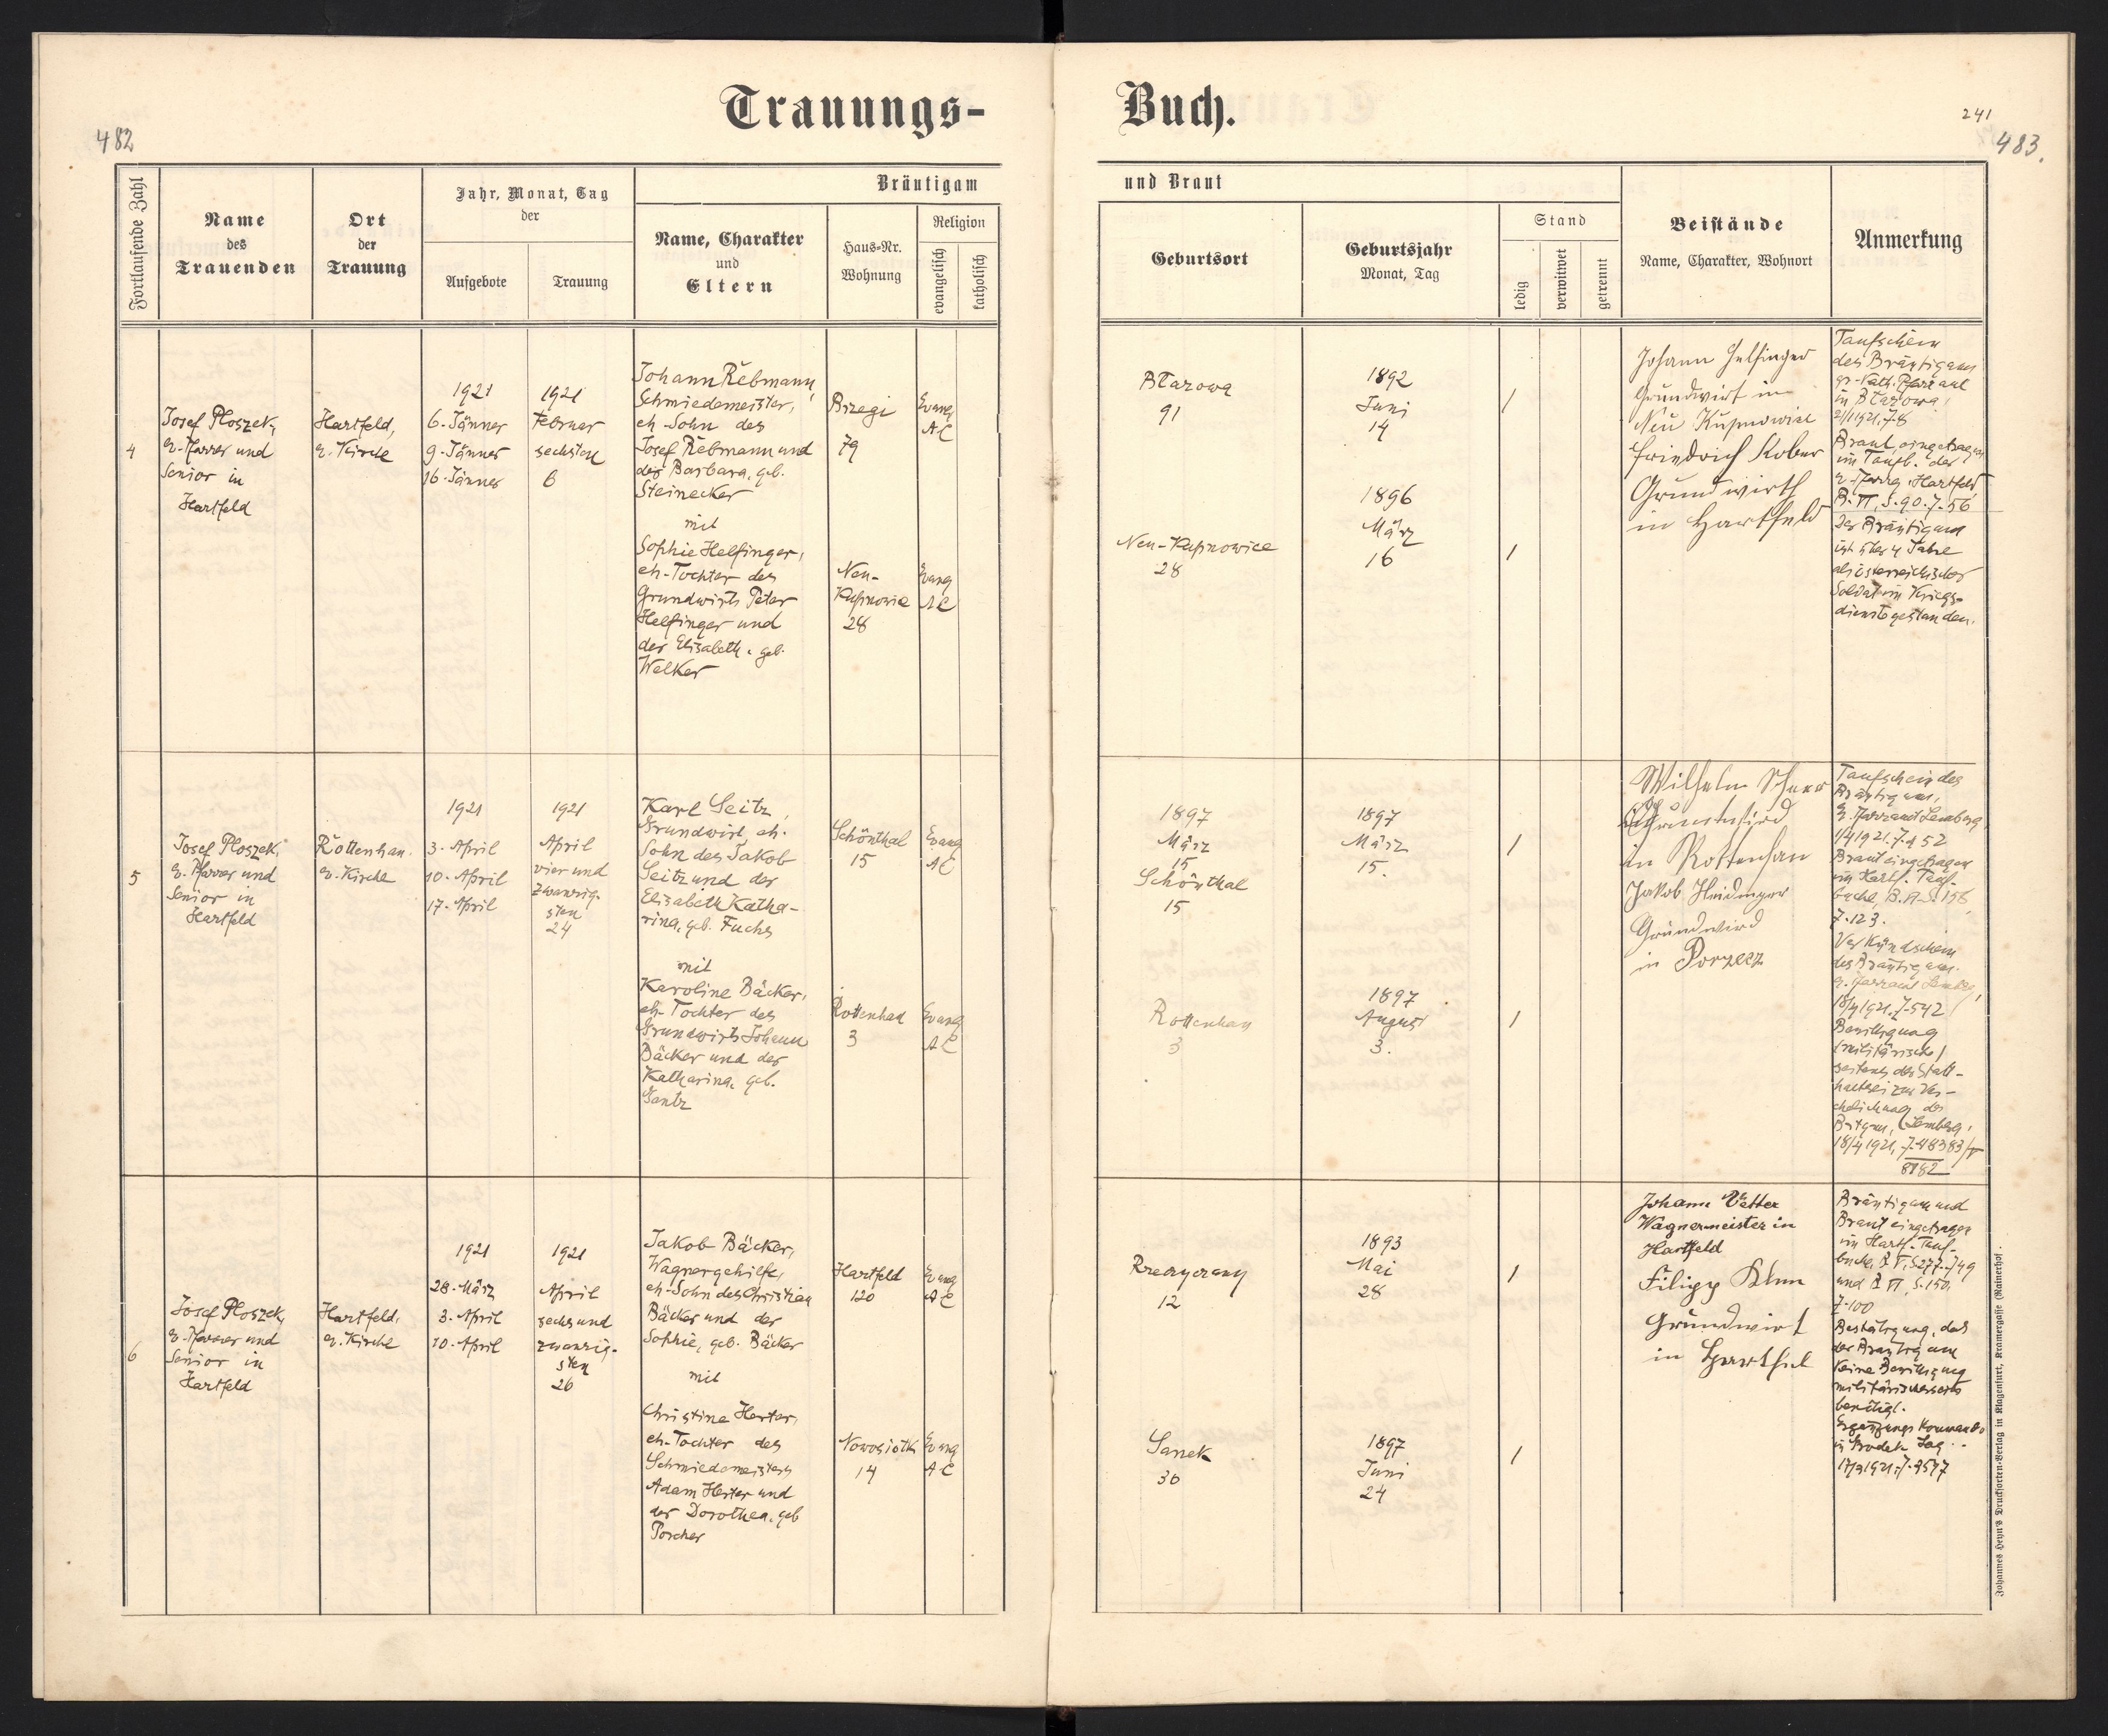 Trauungs-
Buch.
482
241
483.
Fortlaufende Zahl
Name
des
Trauenden
Ort
der
Trauung
Jahr, Monat, Tag
der
Aufgebote
Trauung
Bräutigam
Name, Charakter
und
Eltern
Haus-Nr.
Wohnung
Religion
evangelisch
katholisch
und Braut
Geburtsort
Geburtsjahr
Monat, Tag
Stand
ledig
verwitwet
getrennt
Beistände
Name, Charakter, Wohnort
Anmerkung
4
Josef Ploszek,
ev. Pfarrer und
Senior in
Hartfeld
Hartfeld,
ev. Kirche
1921
6. Jänner
9. Jänner
16. Jänner
1921
Februar
sechsten
6
Johann Rebmann,
Schmiedemeister,
eh. Sohn des
Josef Rebmann und
der Barbara, geb.
Steinecker
mit
Sophie Helfinger,
eh. Tochter des
Grundwirts Peter
Helfinger und
der Elisabeth, geb.
Welker
Brzegi
79
Neu-
Kupnowice
28
Evang
AC
Evang
AC
Btazowa
91
Neu-Kupnowice
28
1892
Juni
14
1896
März
16
/
/
Johann Helfinger
Grundwirt in
Neu Kupnowice
Friedrich Kober
Grundwirth
in Hartfeld
Taufschein
des Bräutigams
gr.-kath. Pfarramt
in Btazowa,
Braut eingetragen
im Taufb. der
ev. Pfarre Hartfeld
B. VI, S. 90. Z. 56
Der Bräutigam
ist über 4 Jahre
als österreichischer
Soldat im Kriegs-
dienste gestanden.
5
Josef Ploszek,
ev. Pfarrer und
Senior in
Hartfeld
Rottenhan
ev. Kirche
1921
3. April
10. April
17. April
1921
April
vier und
zwanzig-
sten
24
Karl Seitz,
Grundwirt, eh.
Sohn des Jakob
Seitz und der
Elisabeth Katha-
rina, geb. Fuchs
mit
Karoline Bäcker,
eh. Tochter des
Grundwirts Johann
Bäcker und der
Katharina, geb.
Gantz
Schönthal
15
Rottenhan
3
Evang
AC
Evang
AC
1897
März
15
Schönthal
15
Rottenhan
3
1897
März
15.
1897
August
3.
/
/
Wilhelm
in Rottenhan
Jakob
Grundwird
in Porzecz
Taufschein des
Bräutigams,
ev. Pfarramt Lemberg,
1/4 1921. Z. 452
Braut eingetragen
im Hartf. Tauf-
buche, B. VI. S. 156,
Z. 123.
Verkündschein
des Bräutigams.
ev. Pfarramt Lemberg,
18/4 1921. Z. 542
Bewilligung
(militärische)
seitens der Statt-
halterei zur Ver-
ehelichung des
Lemberg,
18/4 1921, Z. 48383/
8182
6
Josef Ploszek,
ev. Pfarrer und
Senior in
Hartfeld
Hartfeld,
ev. Kirche
1921
28. März
3. April
10. April
1921
April
sechsund
zwanzig-
sten
26
Jakob Bäcker,
Wagnergehilfe,
eh. Sohn des Christian
Bäcker und der
Sophie, geb. Bäcker
mit
Christine Herter,
eh. Tochter des
Schmiedemeisters
Adam Herter und
der Dorothea, geb
Porcher
Hartfeld
120
Nowosiotki
14
Evang
AC
Evang
AC
Rzeczyczany
12
Sanek
36
1893
Mai
28
1897
Juni
24
/
/
Johann Vetter
Wagnermeister in
Hartfeld
Filipp
Grundwirt
in Hartfeld
Bräutigam und
Braut eingetragen
im Hartf. Tauf-
buche, B. V, S. 277. Z. 49
und B. VI, S. 150,
Z. 100
Bestätigung, dass
der Bräutigam
keine Bewilligung
militärischerseits
benötigt.
Ergänzungs Kommando
in Grodek Jag.